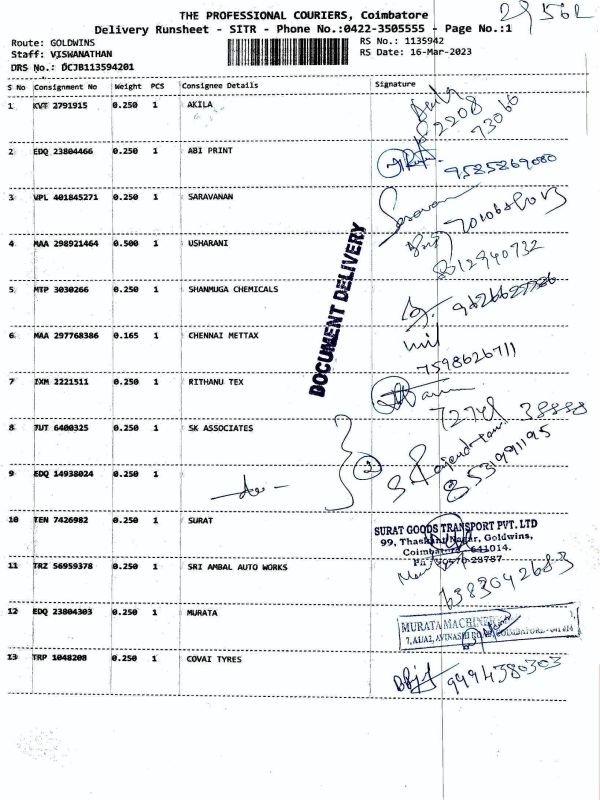 THE PROFESSIONAL COURIERS, Coimbatore
Delivery Runsheet - SITR - Phone No.:0422-3505555 - Page No.:1
Route: GOLDWINS
RS No.: 1135942
Staff: VISWANATHAN
RS Date: 16-Mar-2023
DRS No.: DCJB113594201
S No Consignment No Weight PCS Consignee Details Signature
1 KVT 2791915 0.250 1 AKILA
2208
73066
2 EDQ 23804466 0.250 1 ABI PRINT
9585869000
3 VPL 401845271 0.250 1 SARAVANAN
4 MAA 298921464 0.500 1 USHARANI
8012940732
DOCUMENT DELIVERY
5 MTP 3030266 0.250 1 SHANMUGA CHEMICALS
6 MAA 297768386 0.165 1 CHENNAI METTAX
7598626711
7 IXM 2221511 0.250 1 RITHANU TEX
8 TUT 6400325 0.250 1 SK ASSOCIATES
2
8531991195
9 EDQ 14938024 0.250 1
10 TEN 7426982 0.250 1 SURAT
SURAT GOODS TRANSPORT PVT. LTD
99, Nagar, Goldwins,
641014.
11 TRZ 56959378 0.250 1 SRI AMBAL AUTO WORKS
6383042683
12 EDQ 23804303 0.250 1 MURATA
MURATA
13 TRP 1048208 0.250 1 COVAI TYRES
9994380303